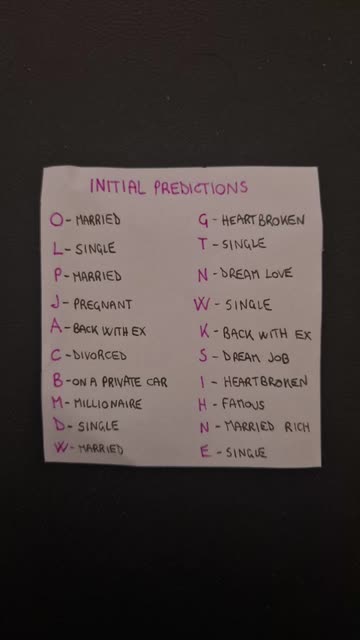 INITIAL PREDICTIONS
O - MARRIED
L - SINGLE
P - MARRIED
J - PREGNANT
A - BACK WITH EX
C - DIVORCED
B - ON A PRIVATE CAR
M - MILLIONAIRE
D - SINGLE
W - MARRIED
G - HEARTBROKEN
T - SINGLE
N - DREAM LOVE
W - SINGLE
K - BACK WITH EX
S - DREAM JOB
I - HEARTBROKEN
H - FAMOUS
N - MARRIED RICH
E - SINGLE